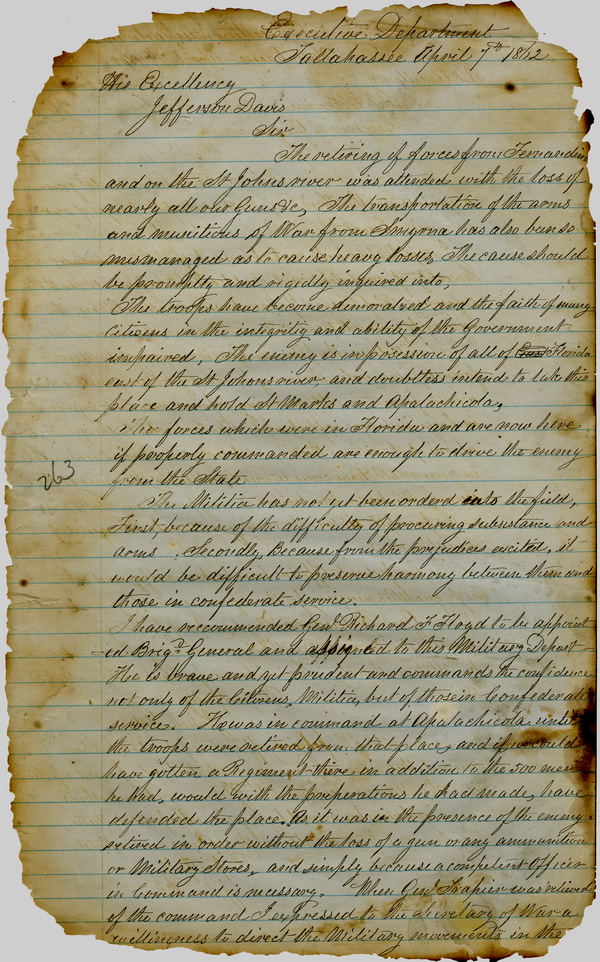 Executive Department
Tallahassee April 7th 1862
His Excellency
Jefferson Davis
Sir
The retiring of forces from Fernandina
and on the St Johns river was attended with the loss of
nearly all our Guns &c, The transportation of the arms
and munitions of War from Smyrna has also been so
mismanaged as to cause heavy losses, The cause should
be promptly and rigidly inquired into,
The troops have become demoralved and the faith of many
Citizens in the integrity and ability of the Government
impaired, The enemy is in posession of all of East Florida
east of the St Johons river, and doubtless intend to take this
place and hold St Marks and Apalachicola,
The forces which were in Florida and are now here
if properly commanded are enough to drive the enemy
from the State
263
The Militia has not yet been orderd into the field,
First, because of the difficulty of procuring subsistance and
arms , Secondly, Because from the prejudices excited, it
would be difficult to preserve harmony between them and
those in confederate service.
I have reccommended Genl Richard F Floyd to be appoint
-ed Brigr General and assigned to this Military Depart-
He is brave and yet prudent and commands the confidence
not only of the Citizens, Militia, but of those in Confederate
service. He was in command at Apalachicola until
the troops were retired from that place, and if we could
have gotten a Regiment there in addition to the 500 men
he had, would with the preperations he had made, have
defended the place. As it was in the presence of the enemy
retired in order without the loss of a gun or any ammunition
or Military Stores, and simply because a competent Officer
in Command is necessary. When Genl Trapier was relieved
of the command I expressed to the Secretary of War a
willingness to direct the Military movements in the